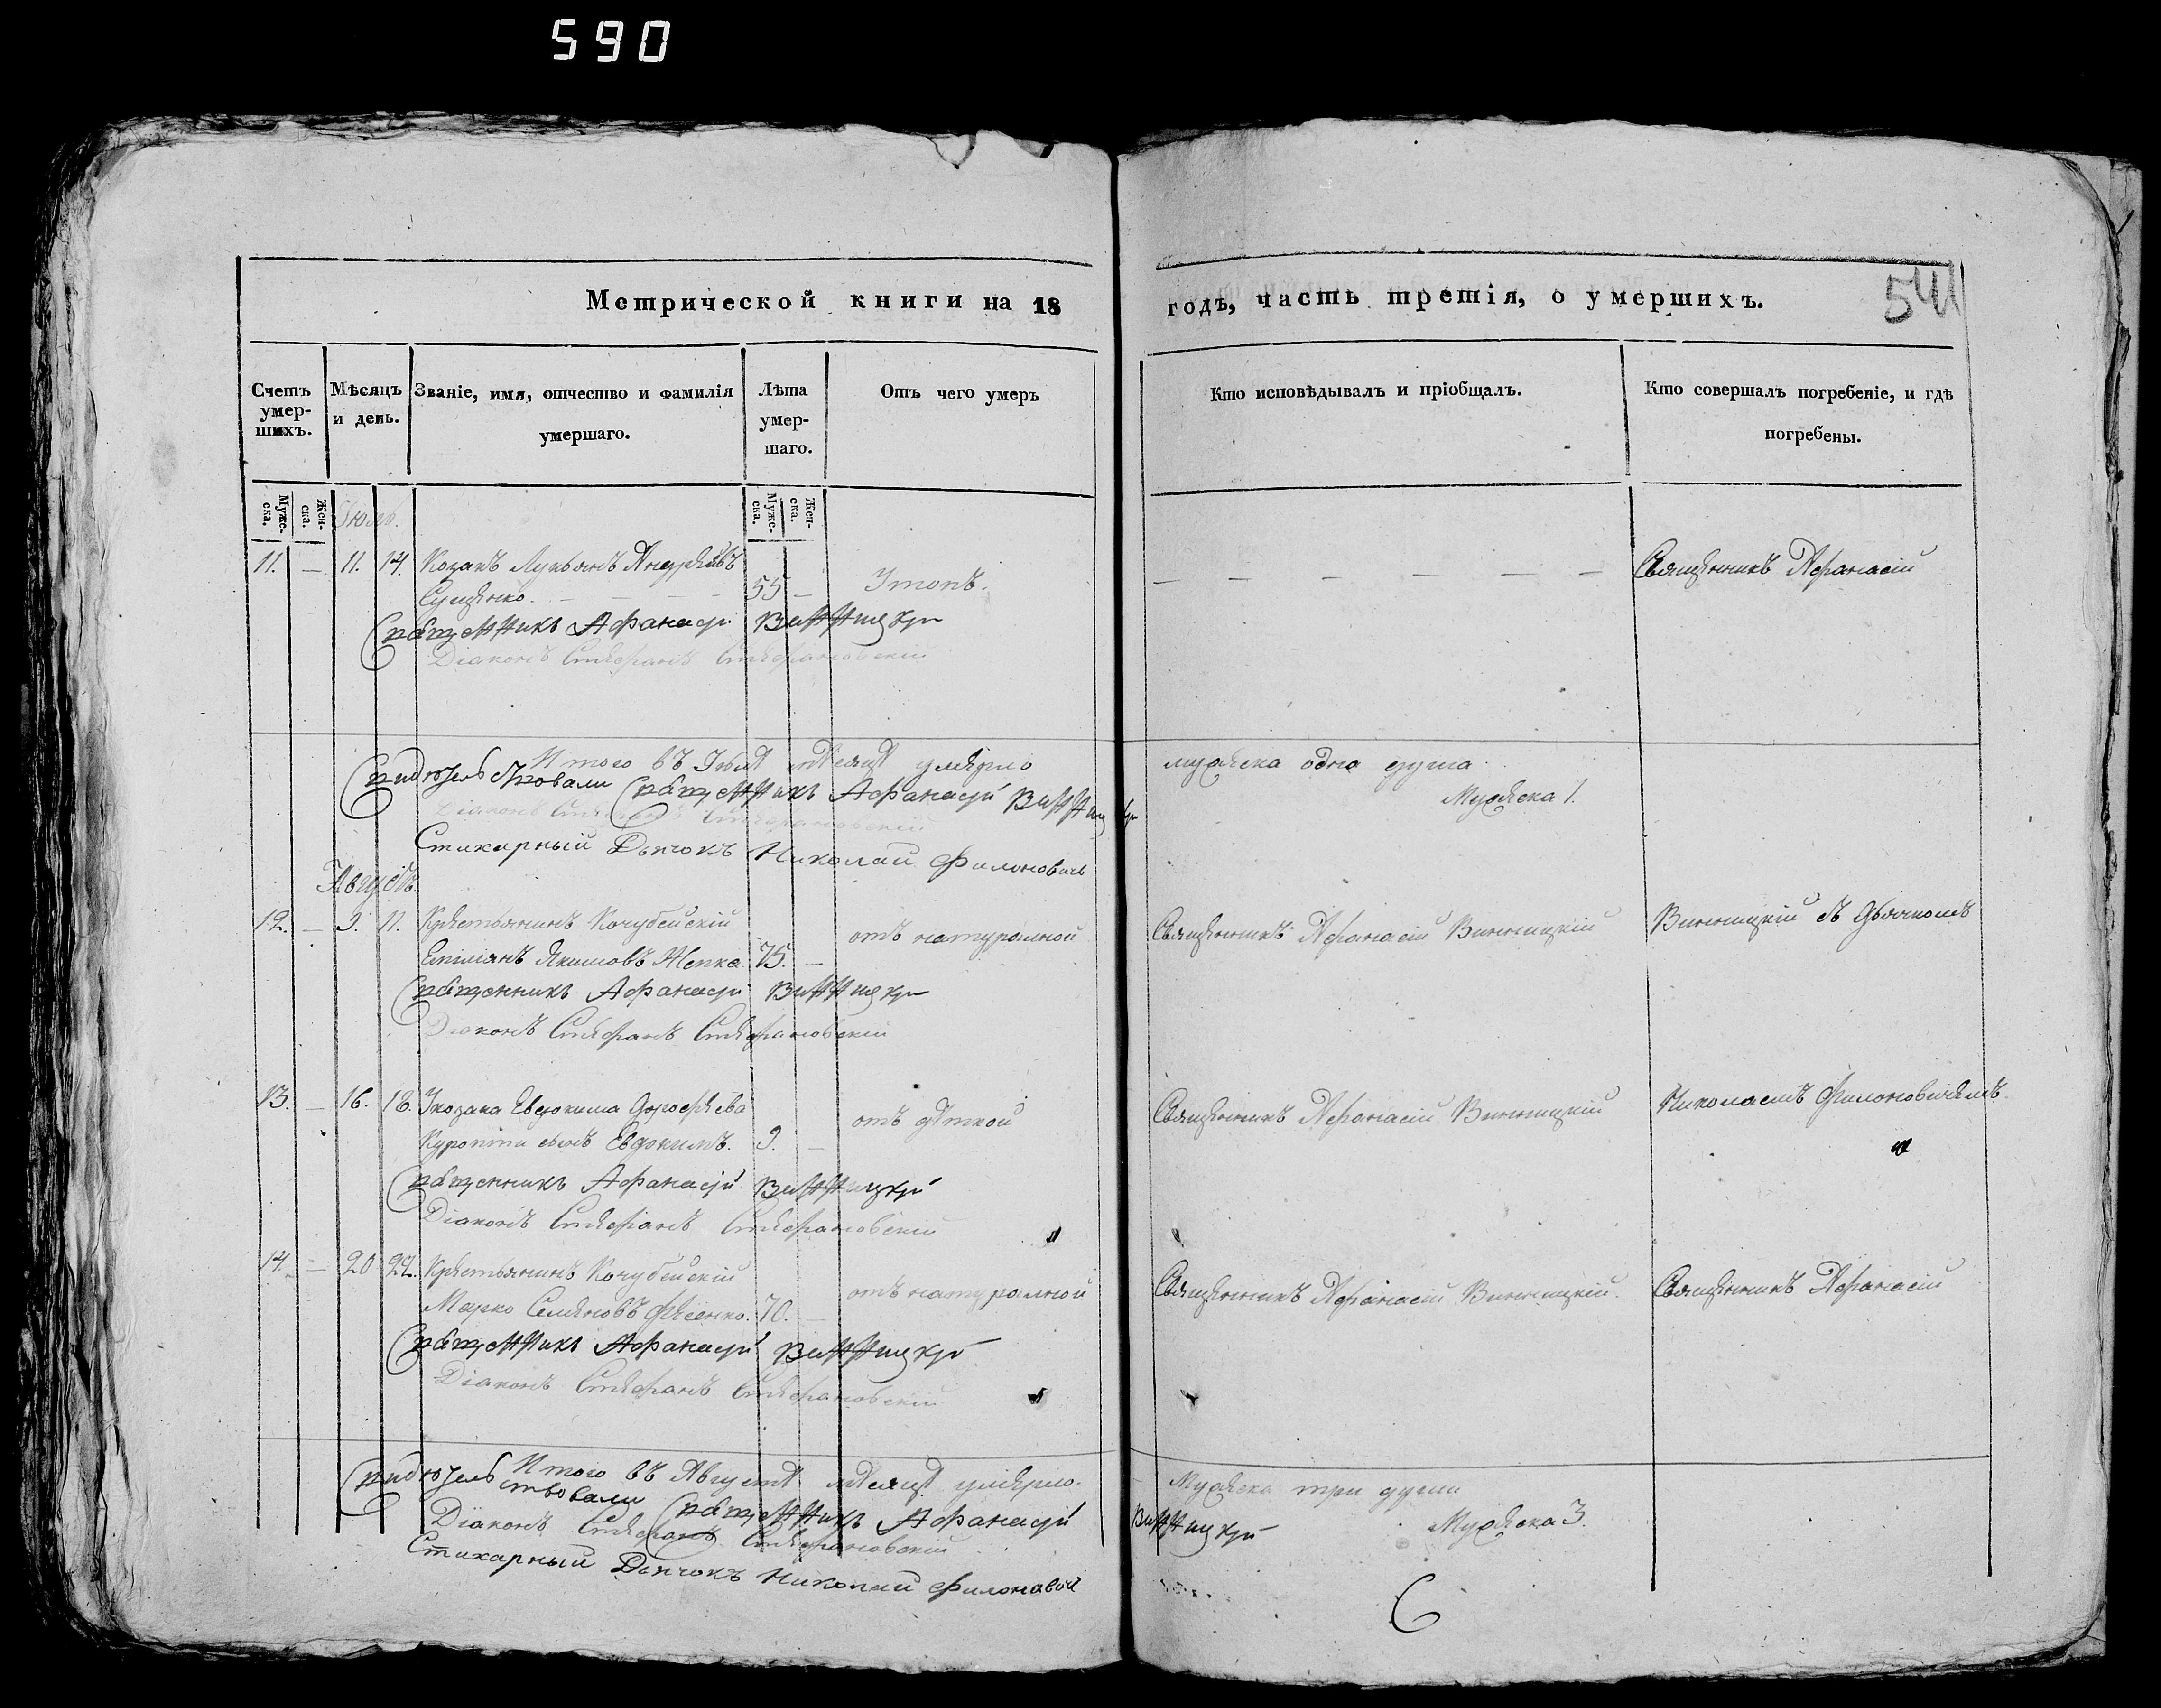 590
Метрической книги на 18 годъ, часть третія, о умершихъ.
541
Счетъ умер-
шихъ.
Мѣсяцъ
и день.
Званіе, имя, отчество и фамилія
умершаго.
Лѣта
умер-
шаго.
Отъ чего умеръ
Кто исповѣдывалъ и пріобщалъ.
Кто совершалъ погребеніе, и гдѣ
погребены.
Муже-
ска.
Жен-
ска.
Муже-
ска.
Жен-
ска.
Іюль.
11. — 11. 14. Козакъ Лукьянъ Андреевъ
Сущенко. — — — 55 — Утопъ. — — — — — — Священникъ Афанасій
Священникъ Афанасій Винницкій
Діаконъ Стефанъ Стефановскій
Итого въ Іюлѣ мѣсяцѣ умерло мужеска одна душа.
Мужеска 1.
Свидѣтельствовали Священникъ Афанасій Винницкій
Діаконъ Стефанъ Стефановскій
Стихарный Дьячокъ Николай Филоновичь
Августъ.
12. — 9. 11. Крестьянинъ Кочубейскій
Емпіянъ Якимовъ Жепка 75. — отъ натуралной Священникъ Афанасій Винницкій Винницкій съ Дьячкомъ
Священникъ Афанасій Винницкій
Діаконъ Стефанъ Стефановскій
13. — 16. 18. У козака Евдокима Дорофеева
Куропіти сынъ Евдокимъ. 9. — отъ дѣтской Священникъ Афанасій Винницкій Николаемъ Филоновичемъ.
Священникъ Афанасій Винницкій
Діаконъ Стефанъ Стефановскій
14. — 20 22. Крестьянинъ Кочубейскій
Марко Семеновъ Фесенко. 70. — отъ натуралной Священникъ Афанасій Винницкій. Священникъ Афанасій
Священникъ Афанасій Винницкій
Діаконъ Стефанъ Стефановскій
Итого въ Августѣ мѣсяцѣ умерло. Мужеска три души
Мужеска 3.
Свидѣтельствовали
Священникъ Афанасій Винницкій
Діаконъ Стефанъ Стефановскій
Стихарный Дьячокъ Николай Филоновой